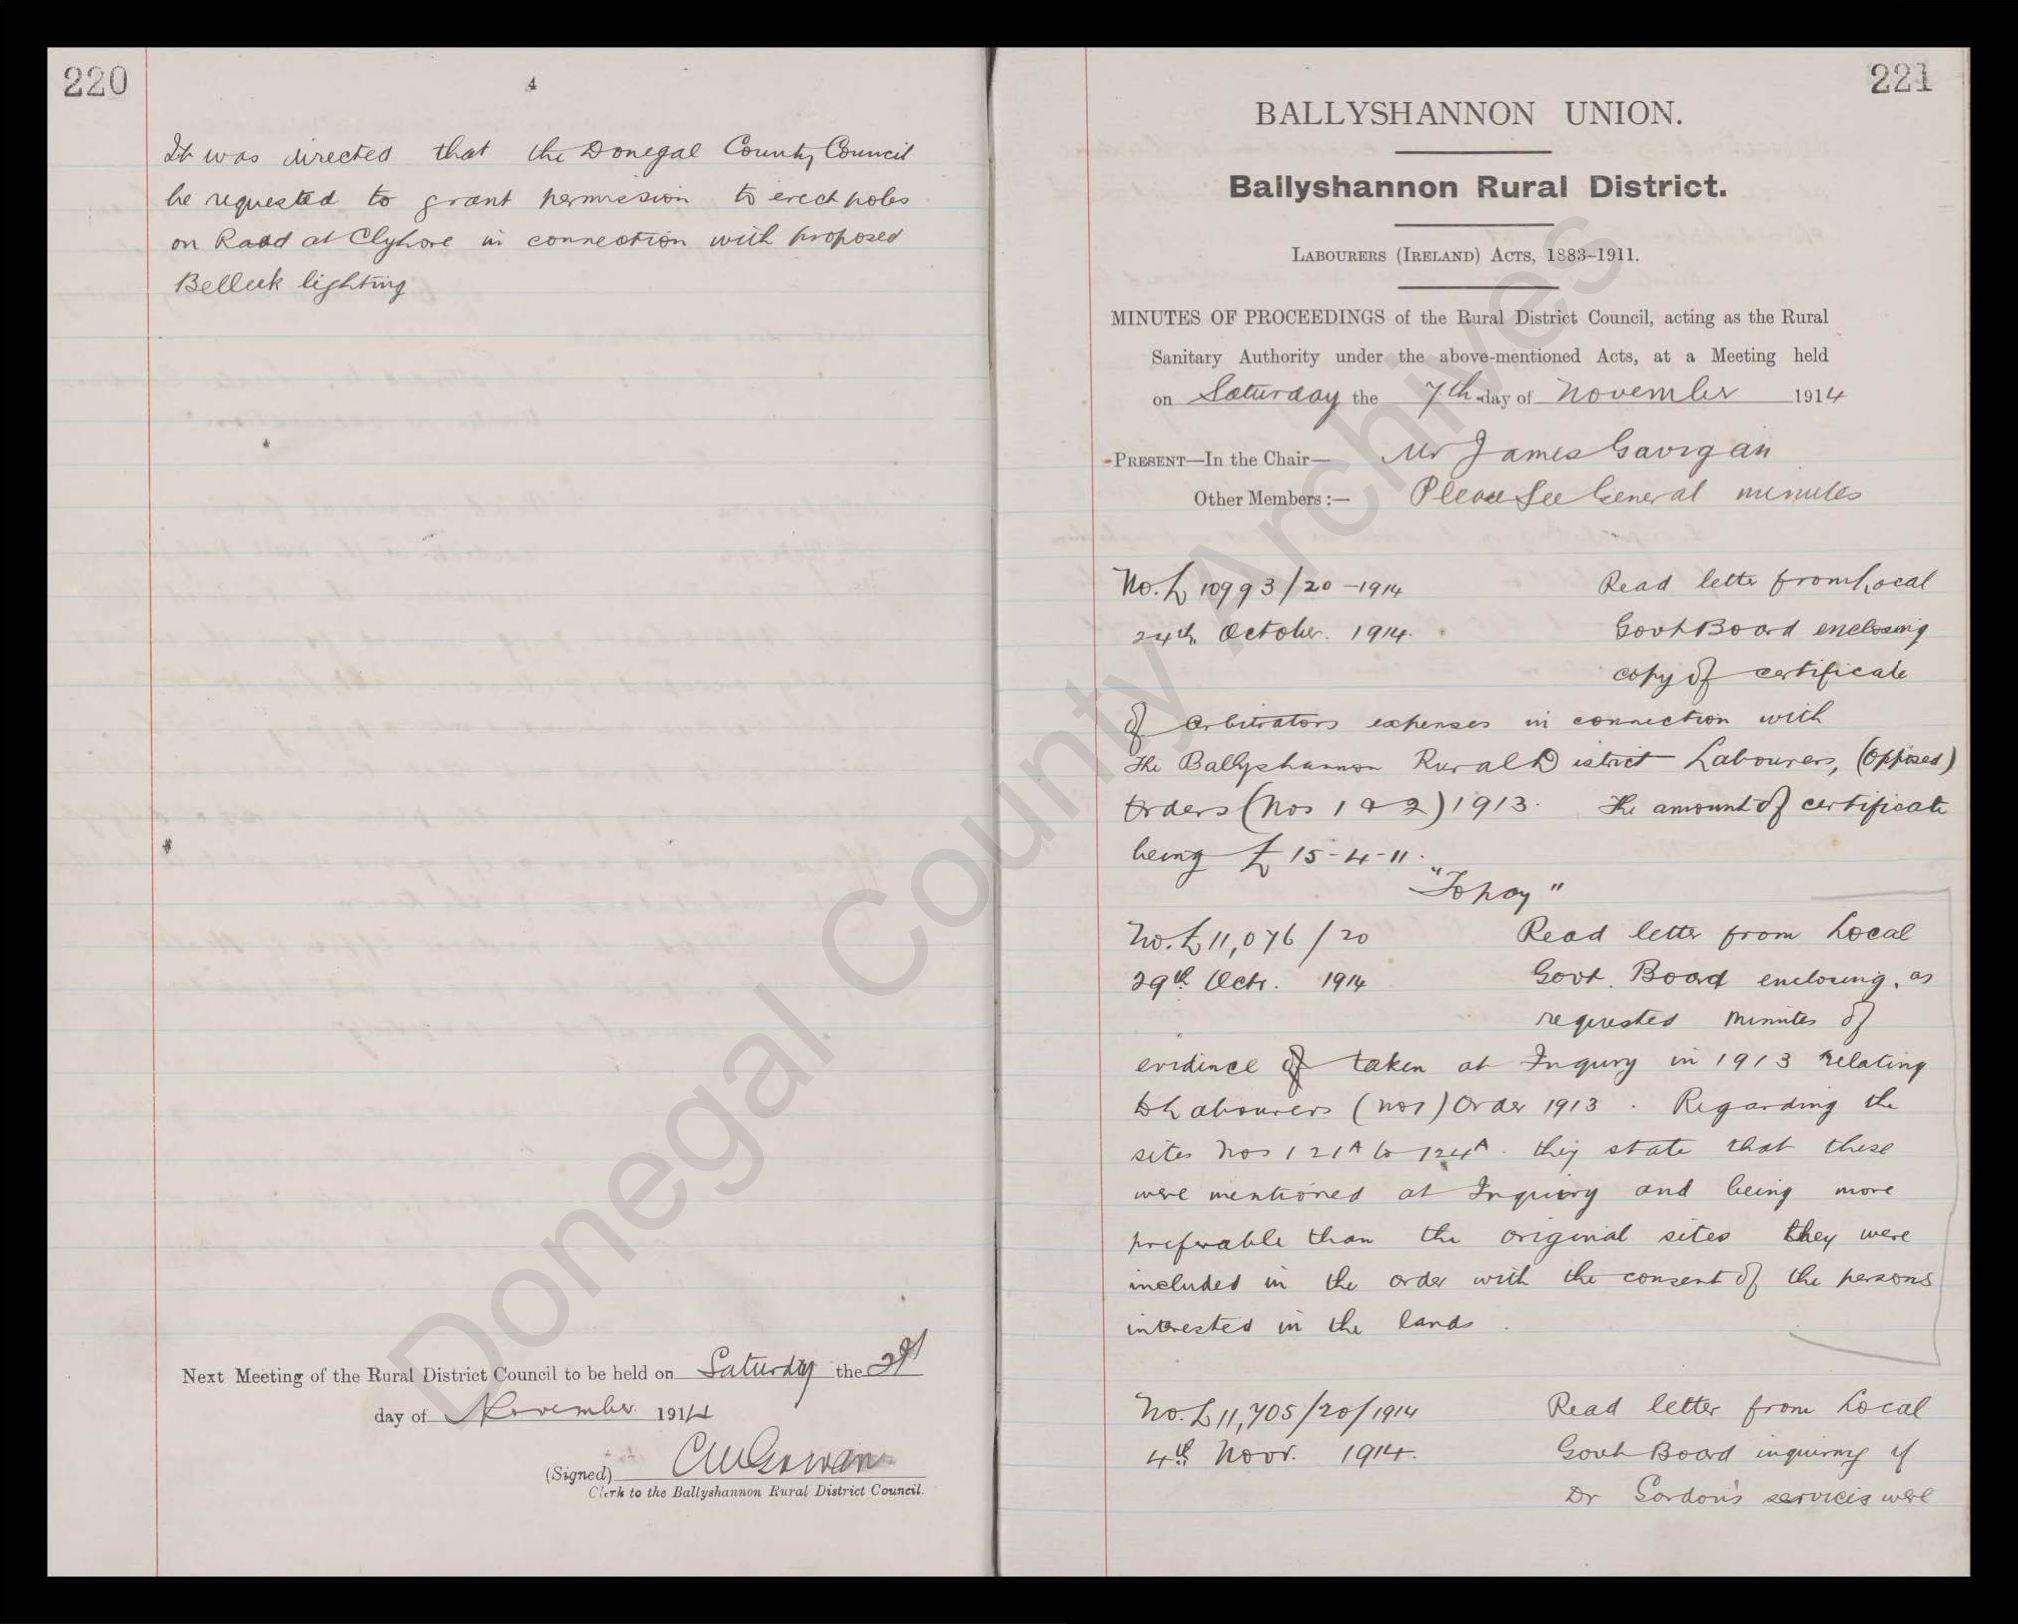 220
4
It was directed that the Donegal County Council
be requested to grant permission to erect poles
on Road at Clyhore in connection with proposed
Belleek lighting
Next Meeting of the Rural District Council to be held on Saturday the 21st
day of November 1914
(Signed) CMcGowan
Clerk to the Ballyshannon Rural District Council.
221
BALLYSHANNON UNION.
Ballyshannon Rural District.
LABOURERS (IRELAND) ACTS, 1883–1911.
MINUTES OF PROCEEDINGS of the Rural District Council, acting as the Rural
Sanitary Authority under the above-mentioned Acts, at a Meeting held
on Saturday the 7th day of November 1914
PRESENT—In the Chair— Mr James Gavigan
Other Members :— Please See General minutes
No. L 10993/20 - 1914 Read letter from Local
24th October. 1914. Govt Board enclosing
copy of certificate
of arbitrators expenses in connection with
the Ballyshannon Rural District Labourers, (Opposed)
Orders (Nos 1 & 2) 1913. The amount of certificate
being £15-4-11.
"To pay"
No. L 11,076/20 Read letter from Local
29th Octr. 1914 Govt. Board enclosing, as
requested minutes of
evidence of taken at Inqury in 1913 relating
to Labourers (No 1) Order 1913. Regarding the
sites Nos 121A to 124A. they state that these
were mentioned at Inquiry and being more
preferable than the original sites they were
included in the order with the consent of the persons
interested in the lands.
No. L 11,705/20/1914 Read letter from Local
4th Novr. 1914. Govt Board inquiring if
Dr Gordon's services were
Donegal County Archives